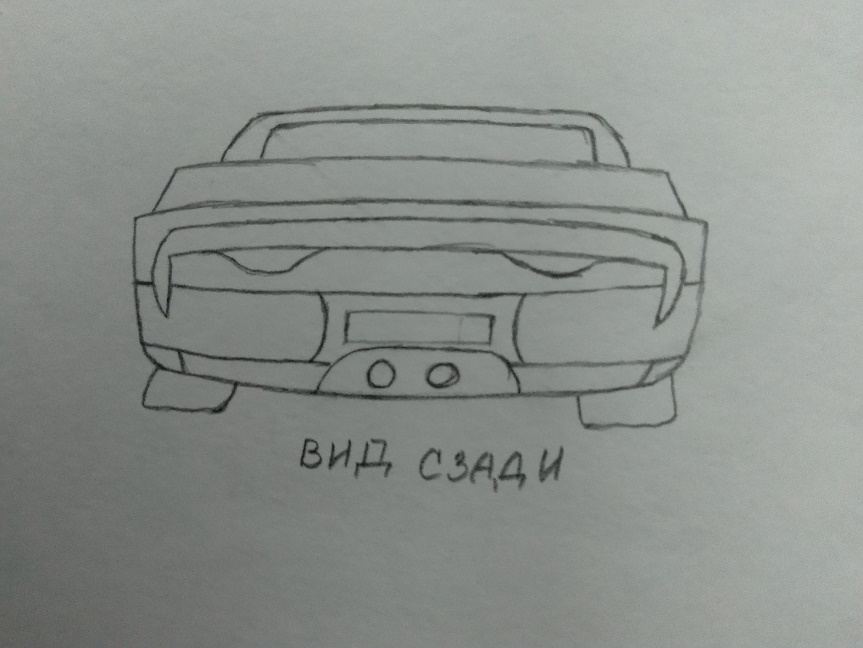 ВИД СЗАДИ